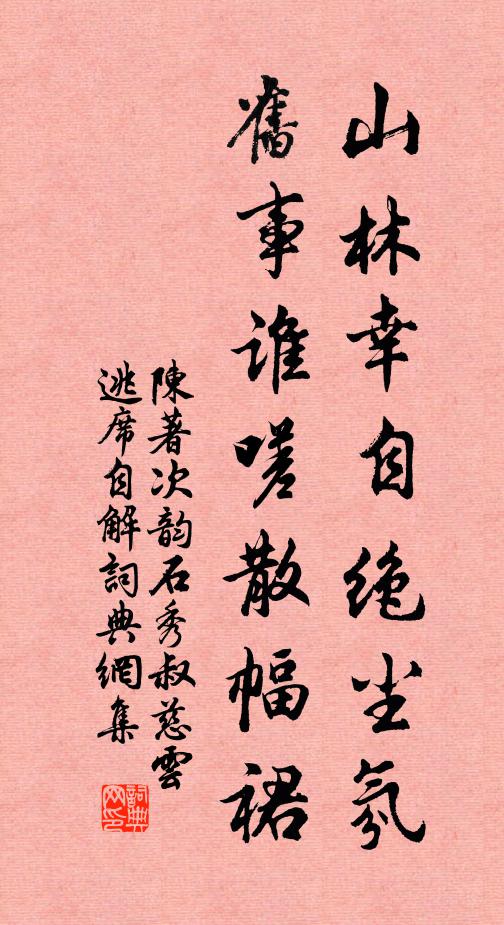 山林幸自绝尘氛
旧事谁嗟散幅裙
陳著次韵石秀叔慈雲
逃席自解詞典網集
詞典网印